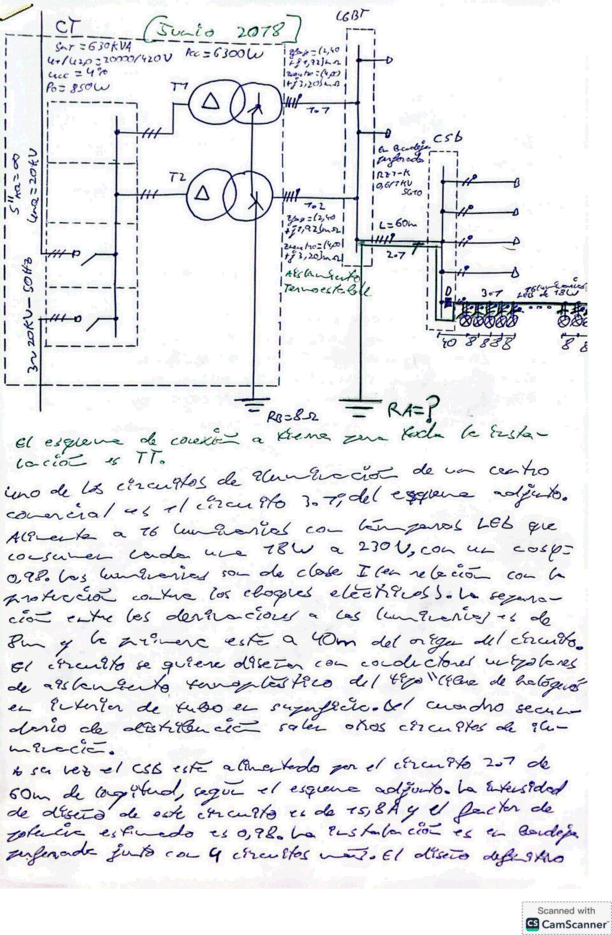 CT
(Junio 2018)
LGBT
SnT = 630KVA
U1/U20 = 20000/420V
ucc = 4%
Po = 850W
Pcc = 6300W
T1
T2
zfase = (2,40
+j1,92)mΩ
zneutro = (4,00
+j3,20)mΩ
1.1
1.2
zfase = (2,40
+j1,92)mΩ
zneutro = (4,00
+j3,20)mΩ
Aislamiento
Termoestable
en Bandeja
perforada
RZ1-K
0,6/1KV
CSB
L=60m
2.1
3.1
16 luminarias
LED de 18W
D
40 8 8 8 8 8 8
S"KQ = ∞
UnQ = 20KV
3~20KV-50Hz
RB = 8Ω
RA = ?
El esquema de conexión a tierra para toda la insta-
lación es TT.
Uno de los circuitos de iluminación de un centro
comercial es el circuito 3.1, del esquema adjunto.
Alimenta a 16 luminarias con lámparas LED que
consumen cada una 18W a 230V, con un cosφ=
0,98. Las luminarias son de clase I (en relación con la
protección contra los choques eléctricos). La separa-
ción entre las derivaciones a las luminarias es de
8m y la primera está a 40m del origen del circuito.
El circuito se quiere diseñar con conductores unipolares
de aislamiento termoplástico del tipo "libre de halógenos"
en interior de tubo en superficie. Del cuadro secun-
dario de distribución salen otros circuitos de ilu-
minación.
A su vez el CSB está alimentado por el circuito 2.1 de
60m de longitud, según el esquema adjunto. La intensidad
de diseño de este circuito es de 15,8A y el factor de
potencia estimado es 0,98. La instalación es en Bandeja
perforada junto con 4 circuitos más. El diseño definitivo
Scanned with
CS CamScanner